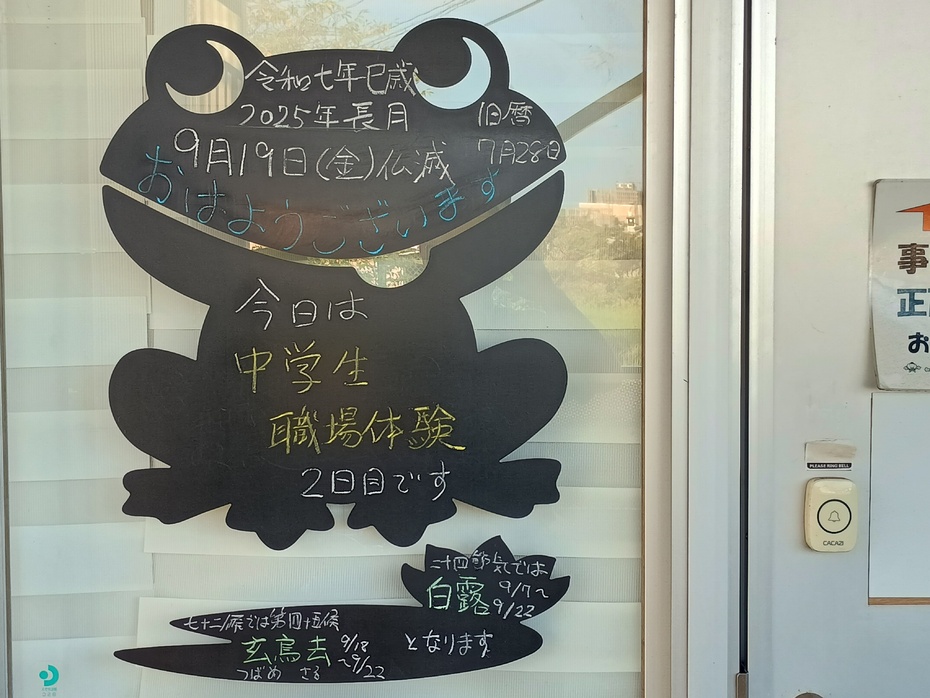 令和七年巳歳
2025年長月
9月19日(金)仏滅
旧暦
7月28日
おはようございます
今日は
中学生
職場体験
2日目です
二十四節気では
白露
9/7～
9/22
七十二候では第四十五候
玄鳥去
つばめ さる
9/18
～9/22
となります
事
正
お
PLEASE RING BELL
CACAZI